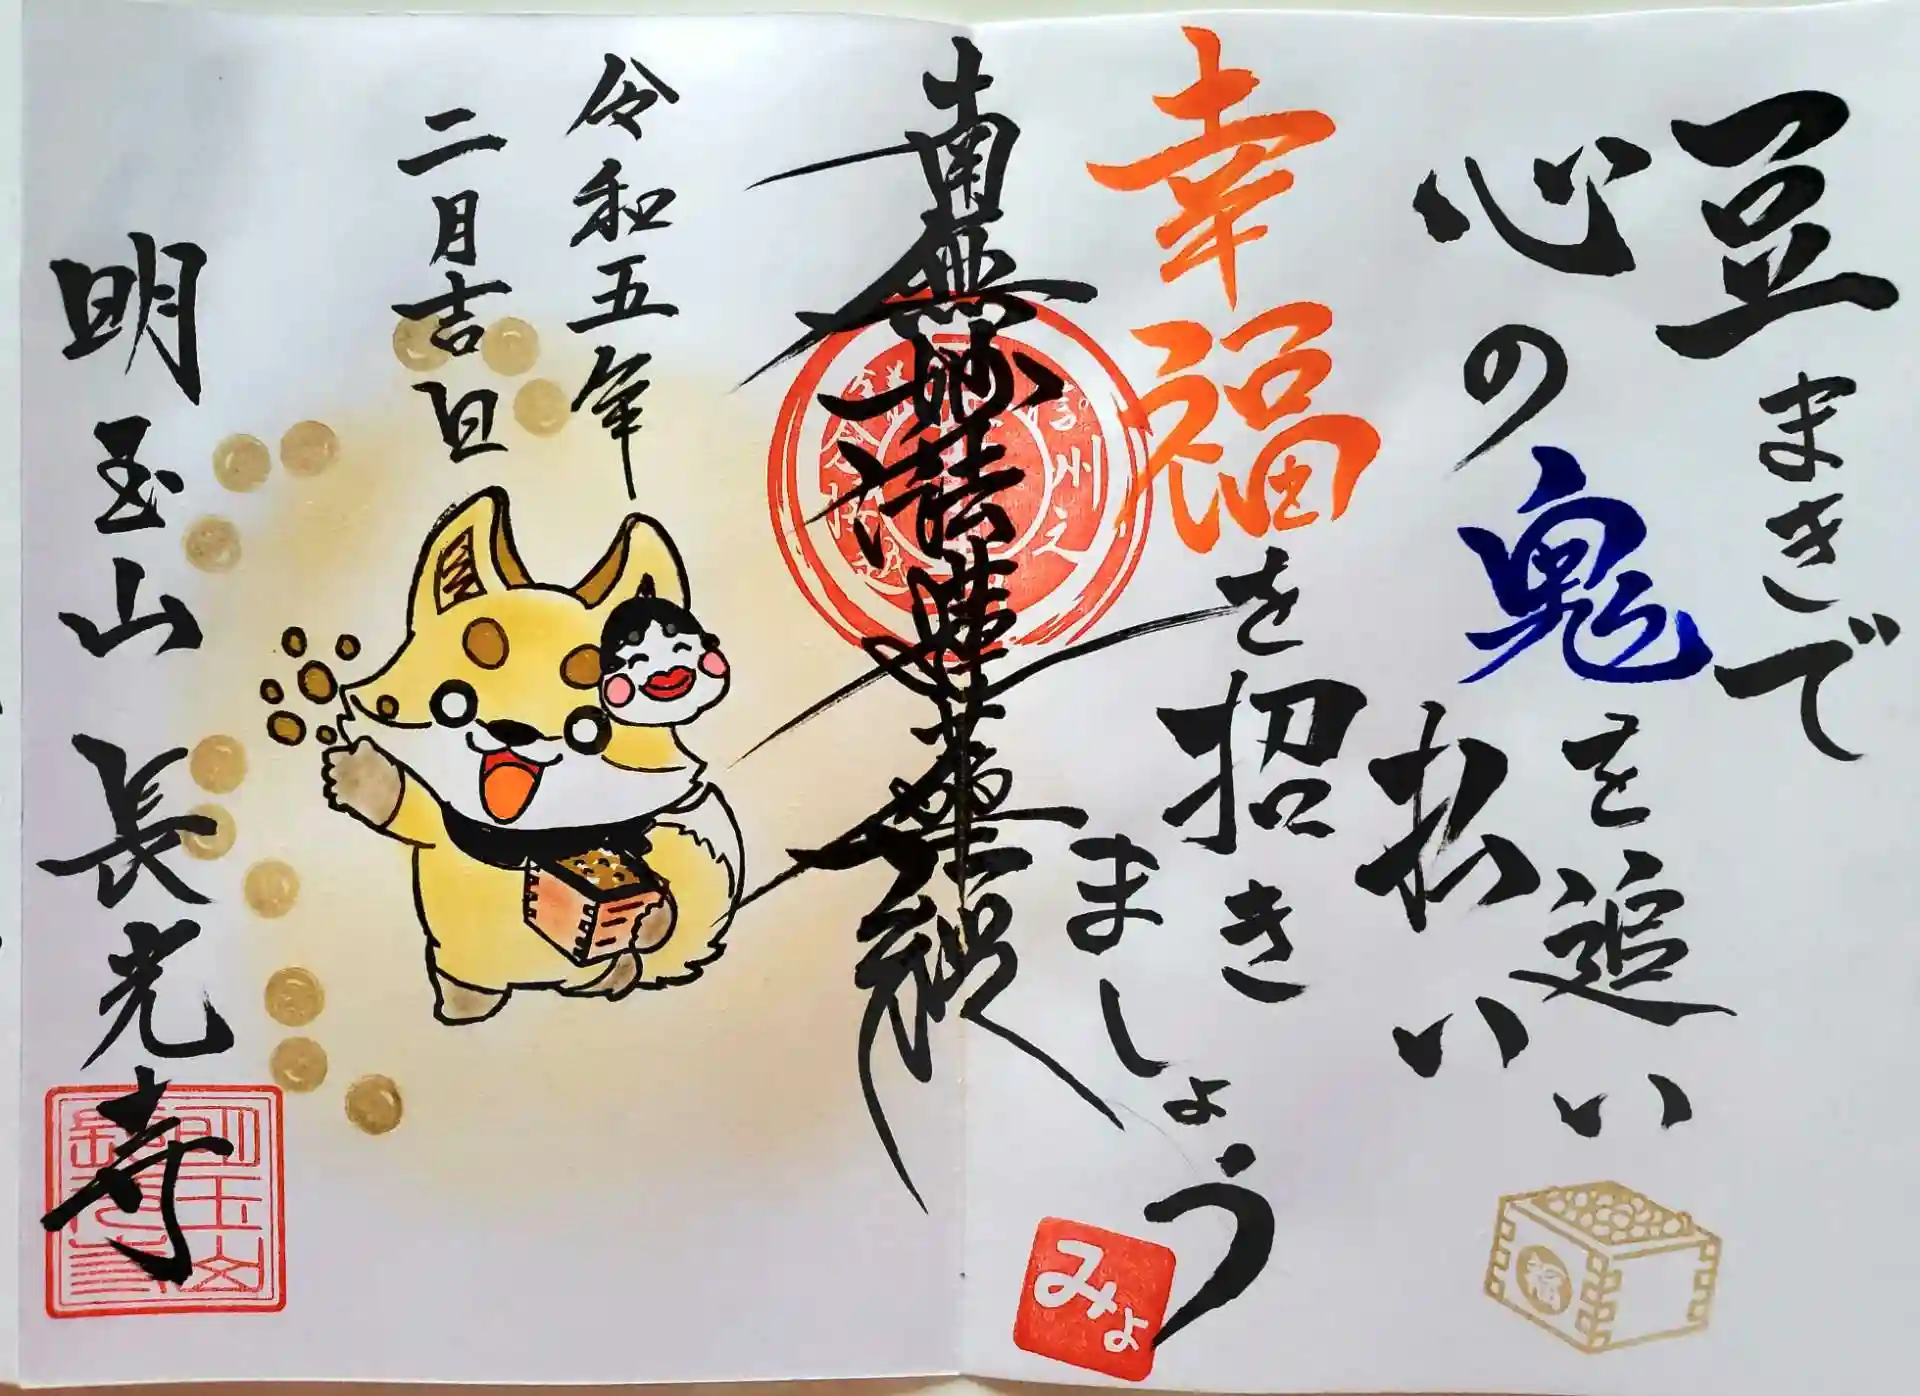 豆まきで
心の鬼を追い
払い
幸福を招き
ましょう
みょ
福
南無妙法蓮華経
令和五年
二月吉日
明玉山 長光寺
明玉山